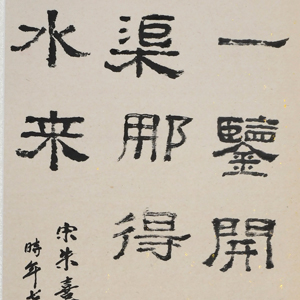 一鑒開
渠那得
水来
宋朱熹
時年